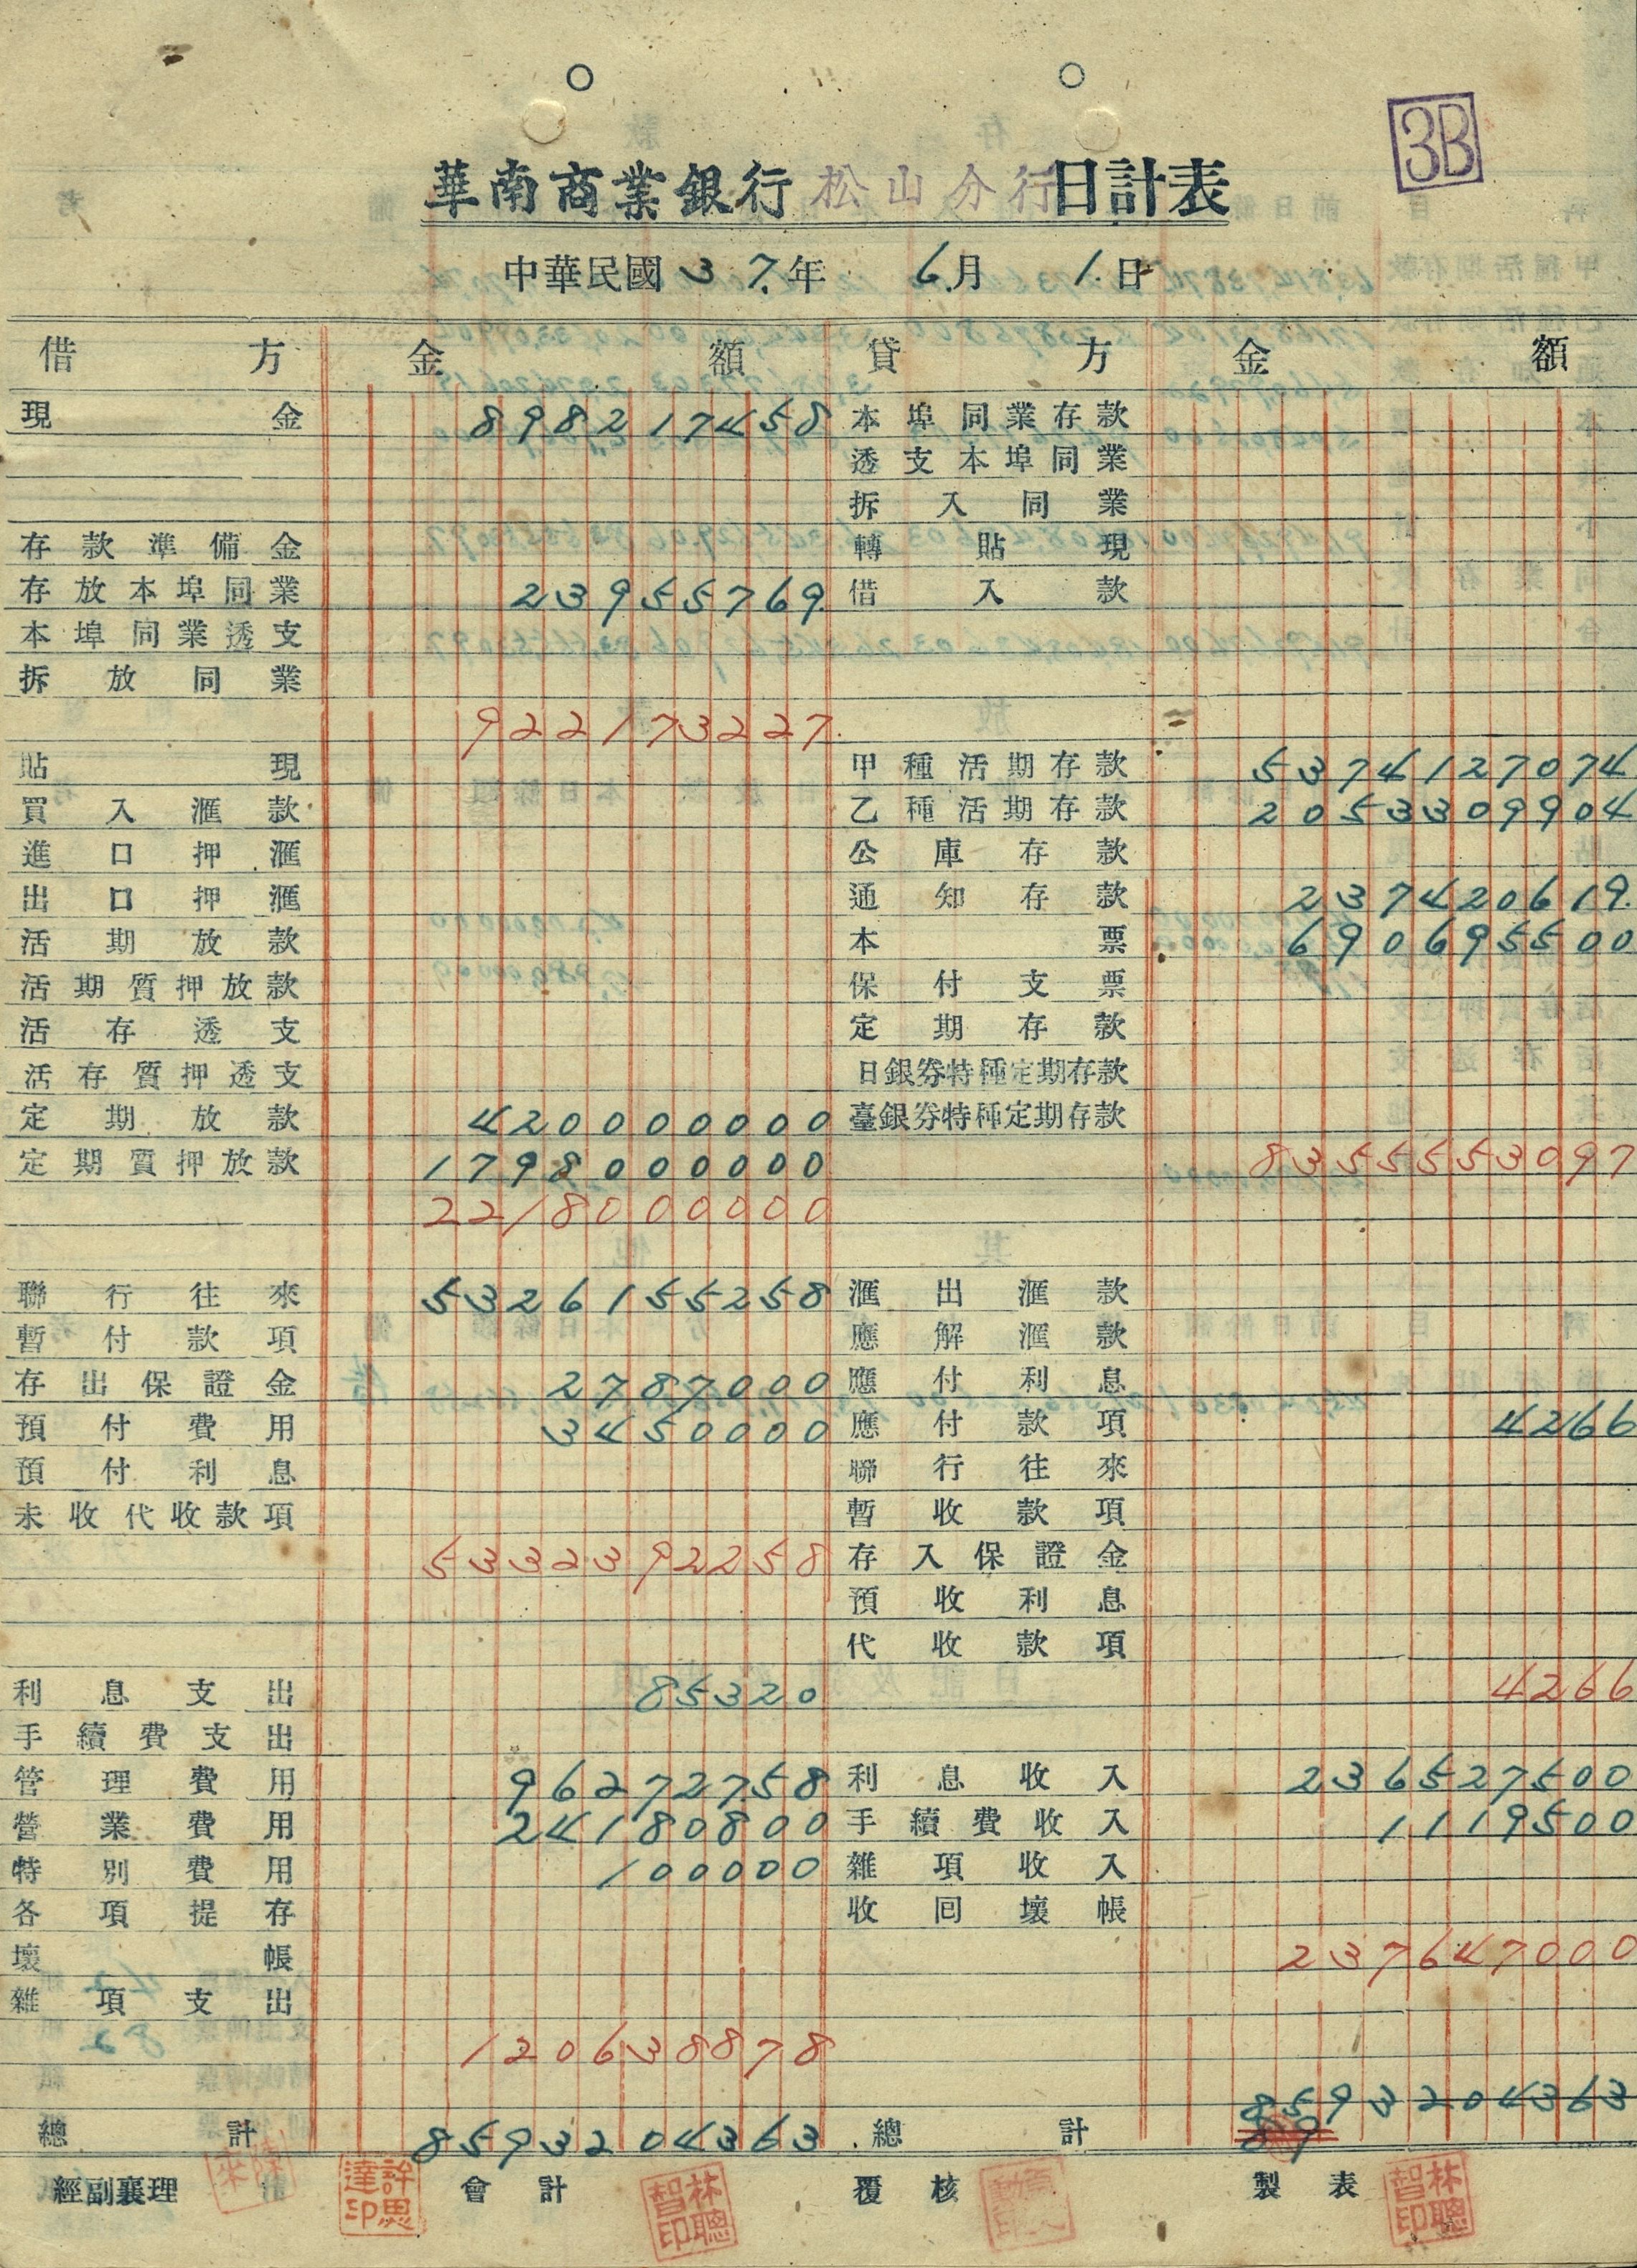 3B
華南商業銀行 松山分行 日計表
中華民國 37.年 6.月 1.日
借方 金額 貸方 金額
現金 898217458 本埠同業存款
透支本埠同業
拆入同業
存款準備金 轉貼現
存放本埠同業 23955769. 借入款
本埠同業透支
拆放同業
922173227.
貼現 甲種活期存款 5374127074
買入滙款 乙種活期存款 2053309904
進口押滙 公庫存款
出口押滙 通知存款 237420619.
活期放款 本票 690695500
活期質押放款 保付支票
活存透支 定期存款
活存質押透支 日銀券特種定期存款
定期放款 420000000 臺銀券特種定期存款
定期質押放款 1798000000 8355553097
2218000000
聯行往來 5326155258 滙出滙款
暫付款項 應解滙款
存出保證金 2787000 應付利息
預付費用 3450000 應付款項 4266
預付利息 聯行往來
未收代收款項 暫收款項
5332392258 存入保證金
預收利息
代收款項
利息支出 85320 4266
手續費支出
管理費用 96272758 利息收入 236527500
營業費用 24180800 手續費收入 1119500
特別費用 100000 雜項收入
各項提存 收回壞帳
壞帳 237647000
雜項支出
120638878
8593204363
總計 8593204363 總計 89
經副襄理 許思達印 會計 林聰智印 覆核 製表 林聰智印